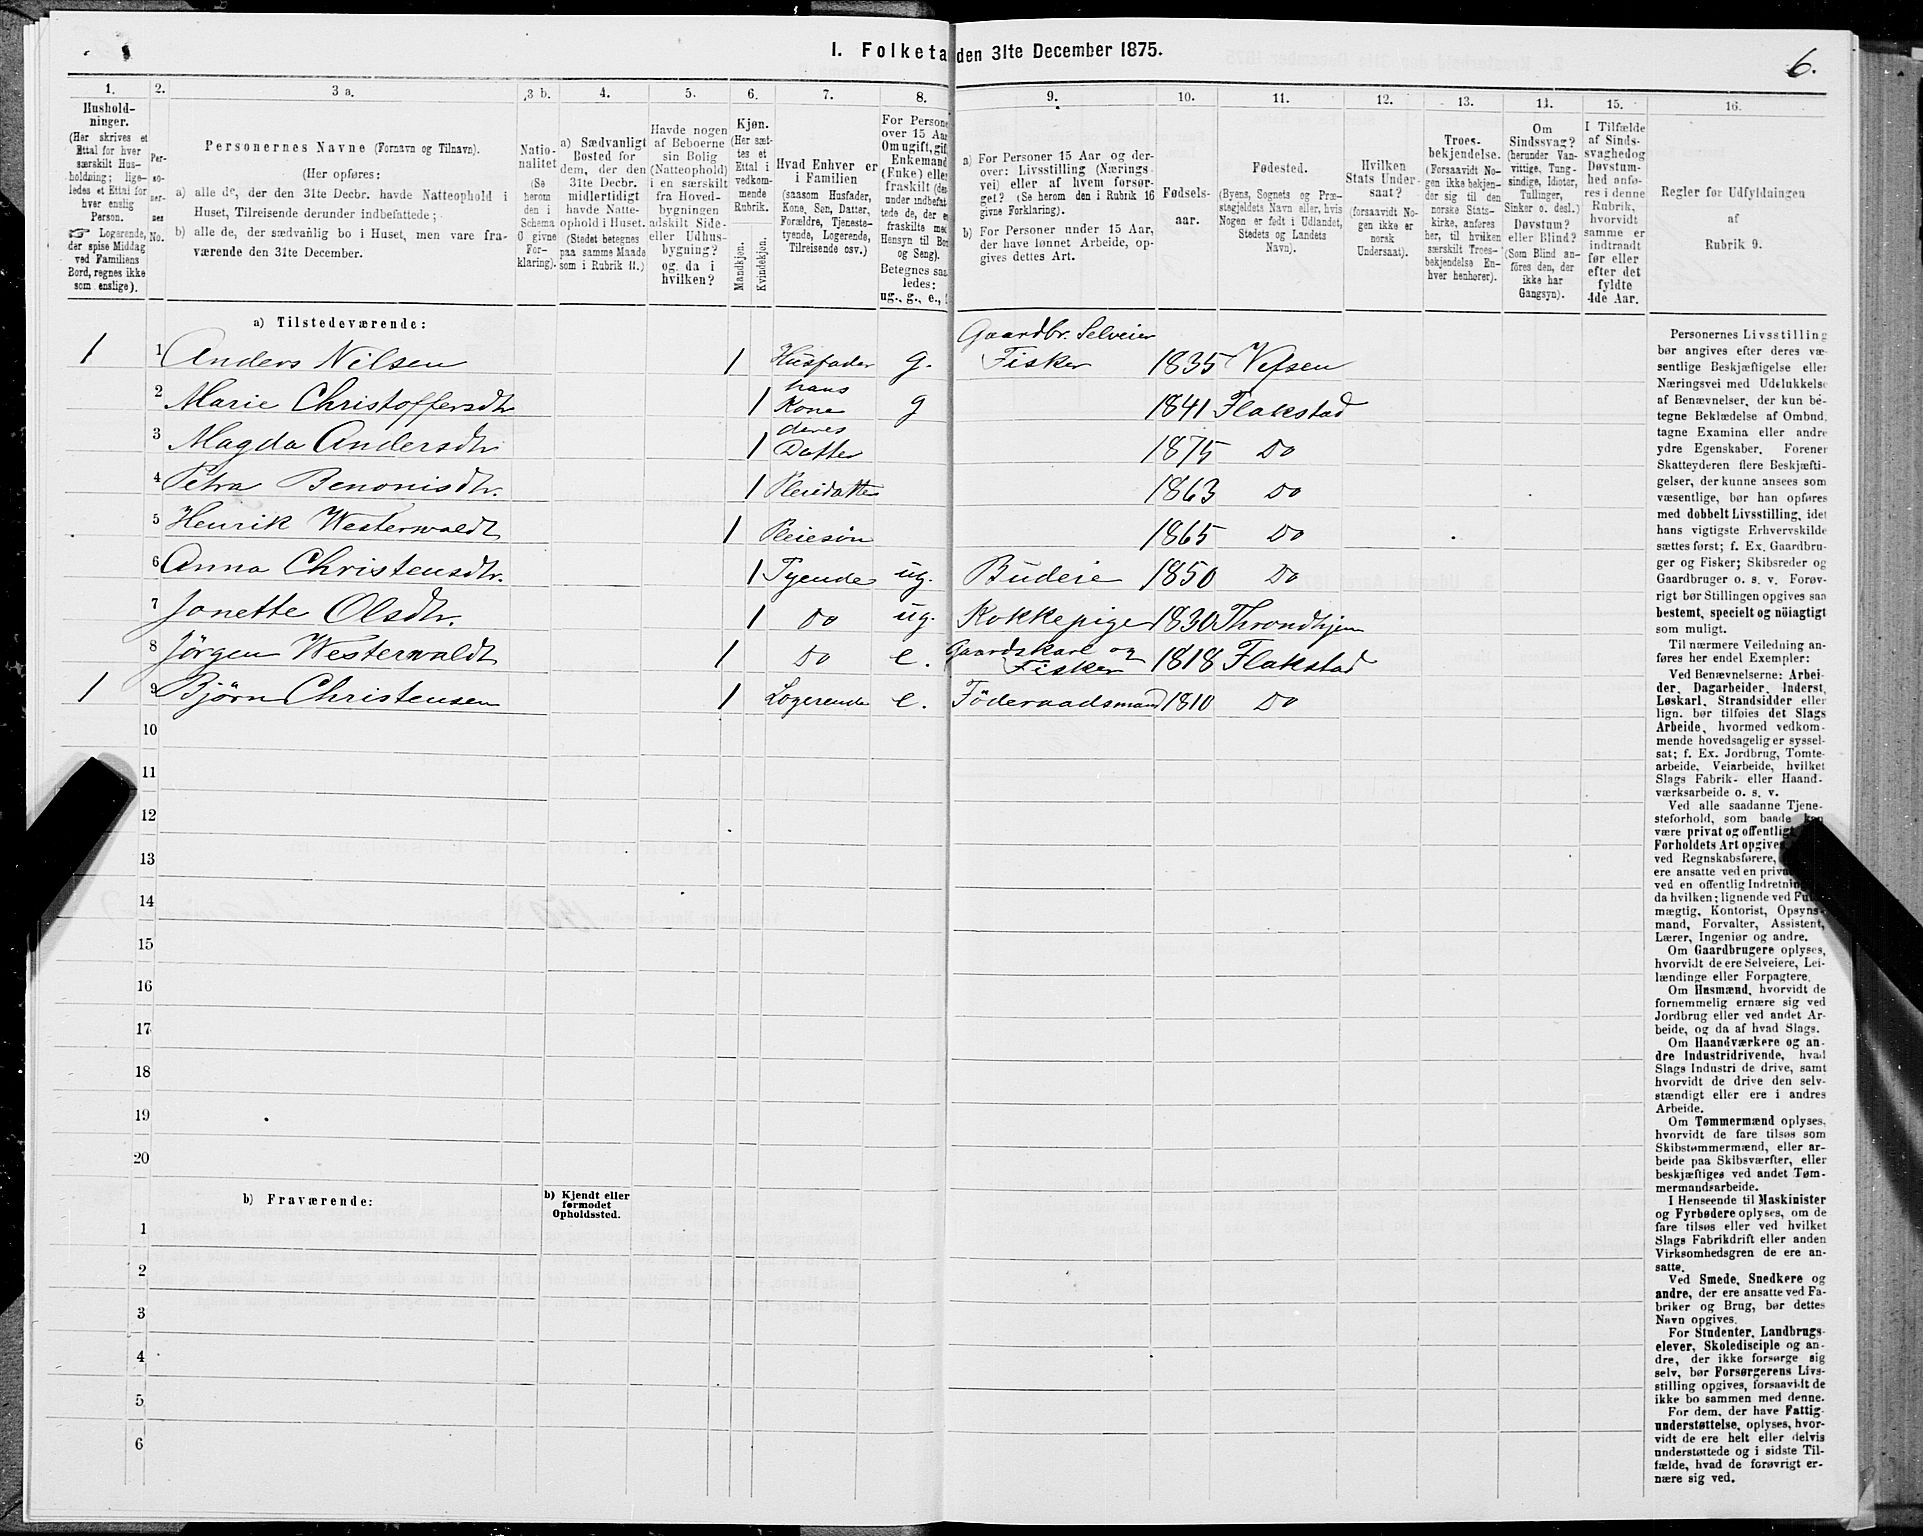 I. Folketa den 31te December 1875.
6.
1. 2. 3 a. 3 b. 4. 5. 6. 7. 8. 9. 10. 11. 12. 13. 14. 15. 16.
Hushold-
ninger.
(Her skrives et
Ettal for hver
særskilt Hus-
holdning; lige-
ledes et Ettal for
hver enslig
Person.
☞ Logerende,
der spise Middag
ved Familiens
Bord, regnes ikke
som enslige).
Per-
so-
ner-
nes
No.
Personernes Navne (Fornavn og Tilnavn).
(Her opføres:
a) alle de, der den 31te Decbr. havde Natteophold i
Huset, Tilreisende derunder indbefattede;
b) alle de, der sædvanlig bo i Huset, men vare fra-
værende den 31te December.
Natio-
nalitet
(Se
herom
den i
Schema
O givne
For-
klaring).
a) Sædvanligt
Bosted for
dem, der den
31te Decbr.
midlertidigt
havde Natte-
ophold i Huset.
(Stedet betegnes
paa samme Maade
som i Rubrik 11.)
Havde nogen
af Beboerne
sin Bolig
(Natteophold)
i en særskilt
fra Hoved-
bygningen
adskilt Side-
eller Udhus-
bygning?
og da i
hvilken?
Kjøn.
(Her sæt-
tes et
Ettal i
vedkom-
mende
Rubrik.
Mandkjøn.
Kvindekjøn.
Hvad Enhver er
i Familien
(saasom Husfader,
Kone, Søn, Datter,
Forældre, Tjeneste-
tyende, Logerende,
Tilreisende osv.)
For Persone
over 15 Aar
Om ugift, gift
Enkemand
(Enke) elle
fraskilt (de
under indbefat
tede de, der e
fraskilte me
Hensyn til Bo
og Seng).
Betegnes saa
ledes:
ug., g., e.,
a) For Personer 15 Aar og der-
over: Livsstilling (Nærings-
vei) eller af hvem forsør-
get? (Se herom den i Rubrik 16
givne Forklaring).
b) For Personer under 15 Aar,
der have lønnet Arbeide, op-
gives dettes Art.
Fødsels-
aar.
Fødested.
(Byens, Sognets og Præ-
stegjeldets Navn eller, hvis
Nogen er født i Udlandet,
Stedets og Landets
Navn).
Hvilken
Stats Under-
saat?
(forsaavidt No-
gen ikke er
norsk
Undersaat).
Troes-
bekjendelse.
(Forsaavidt No-
gen ikke bekjen-
der sig til den
norske Stats-
kirke, anføres
her, til hvilken
særskilt Troes-
bekjendelse En-
hver henhører).
Om
Sindssvag?
(herunder Van-
vittige, Tung-
sindige, Idioter,
Tullinger,
Sinker o. desl.)
Døvstum?
eller Blind?
(Som Blind an-
føres den, der
ikke har
Gangsyn).
I Tilfælde
af Sinds-
svaghed og
Døvstum-
hed anfø-
res i denne
Rubrik,
hvorvidt
samme er
indtraadt
før eller
efter det
fyldte
4de Aar.
Regler for Udfyldningen
af
Rubrik 9.
a) Tilstedeværende:
1 1 Anders Nilsen 1 Husfader g. Gaardbr. Selveier Fisker 1835 Vefsen
2 Marie Christoffersdtr 1 hans Kone g 1841 Flakstad
3 Magda Andersdtr 1 deres Datter 1875 Do
4 Petra Benonisdtr. 1 Pleiedatter 1863 Do
5 Henrik Westerwaldt 1 Pleiesøn 1865 Do
6 Anna Christensdtr. 1 Tyende ug. Budeie 1850 Do
7 Jonette Olsdtr. 1 Do ug. Kokkepige 1830 Throndhjem
8 Jørgen Westerwaldt 1 Do e. Gaardskarl og Fisker 1818 Flakstad
1 9 Bjørn Christensen 1 Logerende e. Föderaadsmand 1810 Do
10
11
12
13
14
15
16
17
18
19
20
b) Fraværende:
b) Kjendt eller
formodet
Opholdssted.
1
2
3
4
5
6
Personernes Livsstilling
bør angives efter deres væ-
sentlige Beskjæftigelse eller
Næringsvei med Udelukkelse
af Benævnelser, der kun be-
tegne Beklædelse af Ombud,
tagne Examina eller andre
ydre Egenskaber. Forener
Skatteyderen flere Beskjæfti-
gelser, der kunne ansees som
væsentlige, bør han opføres
med dobbelt Livsstilling, idet
hans vigtigste Erhvervskilde
sættes først; f. Ex. Gaardbru-
ger og Fisker; Skibsreder og
Gaardbruger o. s. v. Forøv-
rigt bør Stillingen opgives saa
bestemt, specielt og nöiagtigt
som muligt.
Til nærmere Veiledning an-
føres her endel Exempler:
Ved Benævnelserne: Arbei-
der, Dagarbeider, Inderst,
Løskarl, Strandsidder eller
lign. bør tilføies det Slags
Arbeide, hvormed vedkom-
mende hovedsagelig er syssel-
sat; f. Ex. Jordbrug, Tomte-
arbeide, Veiarbeide, hvilket
Slags Fabrik- eller Haand-
værksarbeide o. s. v.
Ved alle saadanne Tjene-
steforhold, som baade kan
være privat og offentligt
Forholdets Art opgives,
ved Regnskabsførere,
ere ansatte ved en privat
ved en offentlig Indretning
da hvilken; lignende ved Ful
mægtig, Kontorist, Opsyns-
mand, Forvalter, Assistent,
Lærer, Ingeniør og andre.
Om Gaardbrugere oplyses,
hvorvidt de ere Selveiere, Lei-
lændinge eller Forpagtere.
Om Husmænd, hvorvidt de
fornemmelig ernære sig ved
Jordbrug eller ved andet Ar-
beide, og da af hvad Slags.
Om Haandværkere og an-
dre Industridrivende, hvad
Slags Industri de drive, samt
hvorvidt de drive den selv-
stændigt eller ere i andres
Arbeide.
Om Tømmermænd oplyses,
hvorvidt de fare tilsøs som
Skibstømmermænd, eller ar-
beide paa Skibsværfter, eller
beskjæftiges ved andet Tøm-
mermandsarbeide.
I Henseende til Maskinister
og Fyrbødere oplyses, om de
fare tilsøs eller ved hvilket
Slags Fabrikdrift eller anden
Virksomhedsgren de ere an-
satte.
Ved Smede, Snedkere og
andre, der ere ansatte ved Fa-
briker og Brug, bør dettes
Navn opgives.
For Studenter, Landbrugs-
elever, Skoledisciple og an-
dre, der ikke forsørge sig
selv, bør Forsørgerens Livs-
stilling opgives, forsaavidt de
ikke bo sammen med denne.
For dem, der have Fattig-
understøttelse, oplyses, hvor-
vidt de ere helt eller delvis
understøttede og i sidste Til-
fælde, hvad de forøvrigt er-
nære sig ved.